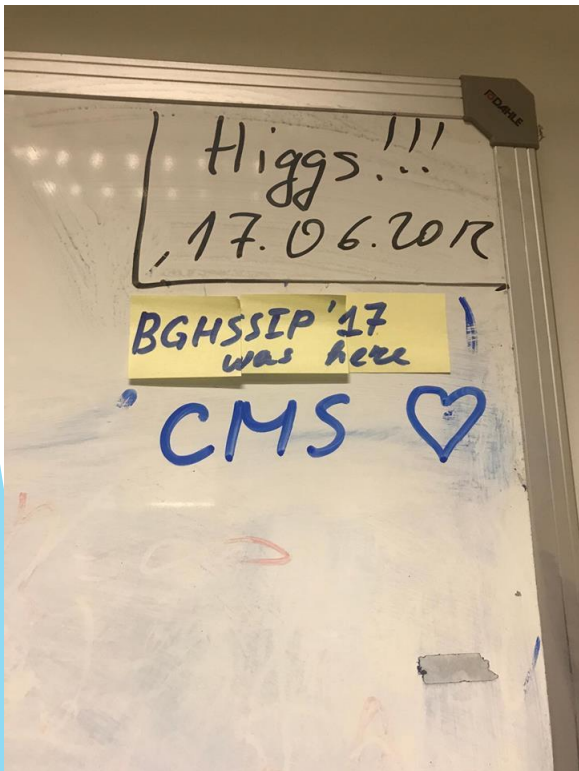 DAHLE
Higgs!!!
17.06.2012
BGHSSIP'17
was here
CMS ♡